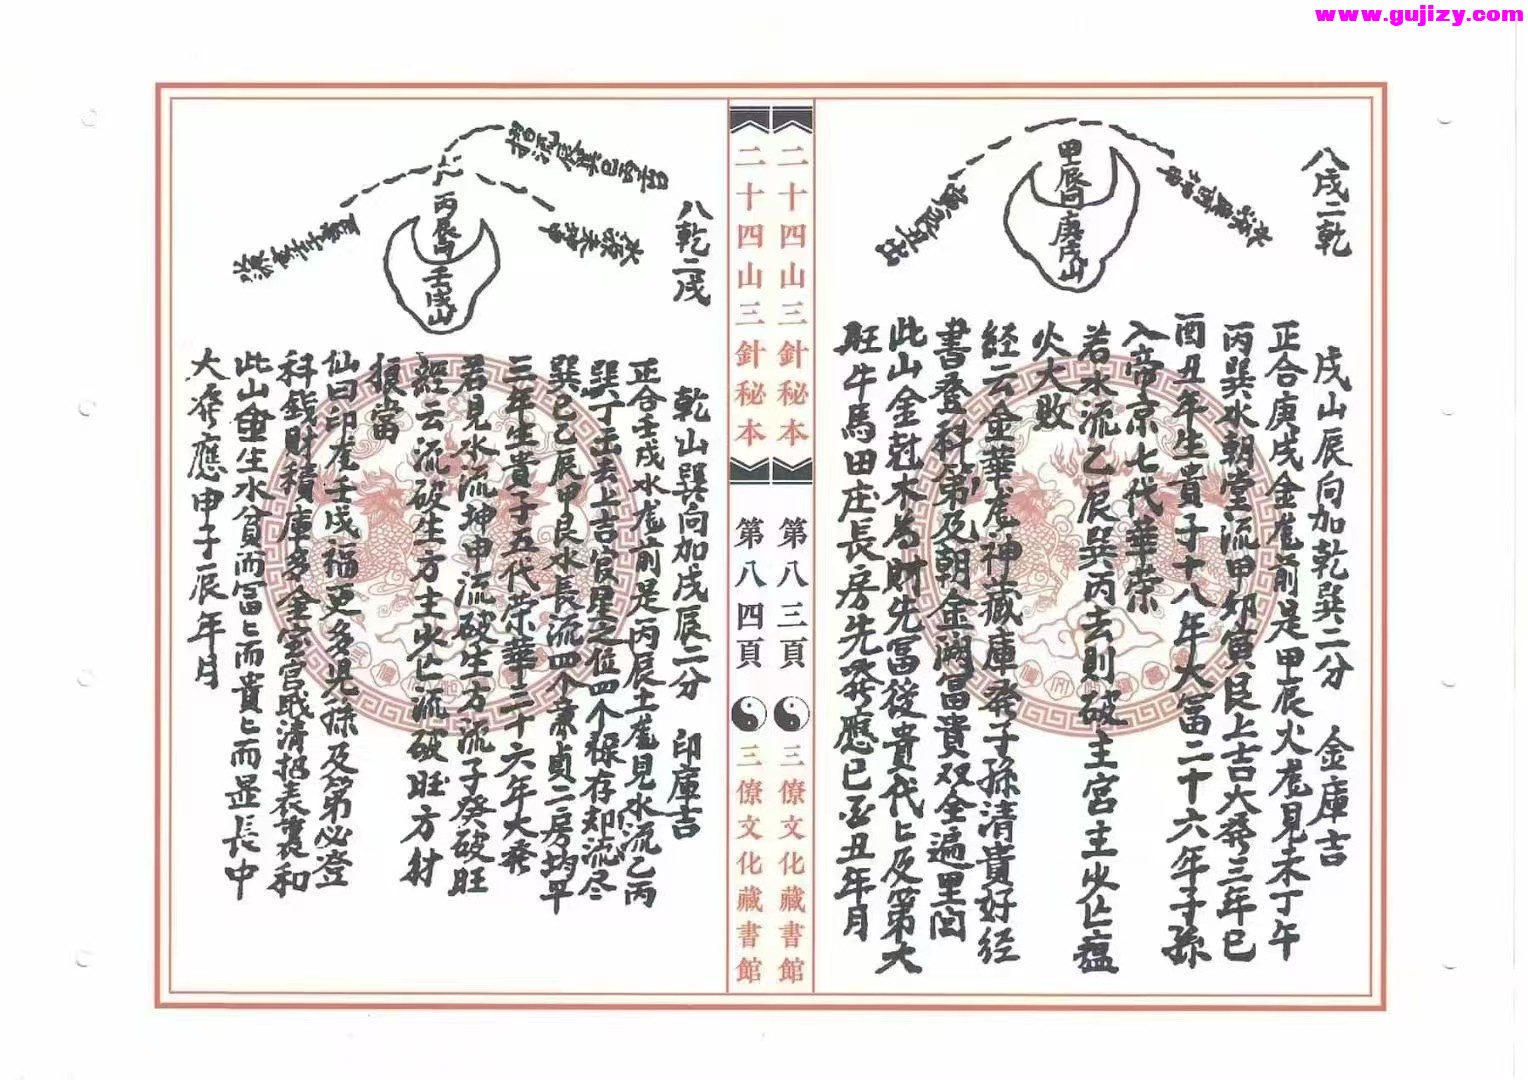 www.gujizy.com
八戌二乾
甲辰向
庚戌山
戌山辰向加乾巽二分 金庫吉
正合庚戌金龙前是甲辰火龙見未丁午
丙巽水朝堂流甲卯寅艮上吉大発三年巳
酉丑年生貴子十八年大富二十六年子孫
入帝京七代華荣
若水流乙辰巽丙去則破主宮主少亡瘟
火大敗
经云金華龙神藏庫発子孫清貴好经
書登科弟及朝金闕冨貴双全遍里闾
此山金尅木為財先冨後貴代匕及第大
旺牛馬田庄長房先発應巳酉丑年月
二十四山三針秘本
第八三頁
三僚文化藏書館
二十四山三針秘本
第八四頁
三僚文化藏書館
八乾二戌
丙辰向
壬戌山
乾山巽向加戌辰二分 印庫吉
正合壬戌水龙前是丙辰土龙見水流乙丙
巽丁去去上吉宸星之位四个禄存却流尽
巽巳乙辰甲艮水長流四个廉貞二房均早
三年生貴子五代荣華三十六年大発
若見水流坤申流破生方流子癸破旺
經云流破生方主少亡流破旺方財
損當
仙曰印龙壬戌福更多児孫及第必登
科钱財積庫多金宝官職清招表裏和
此山金生水貧而冨匕而貴匕而显長中
大発應申子辰年月